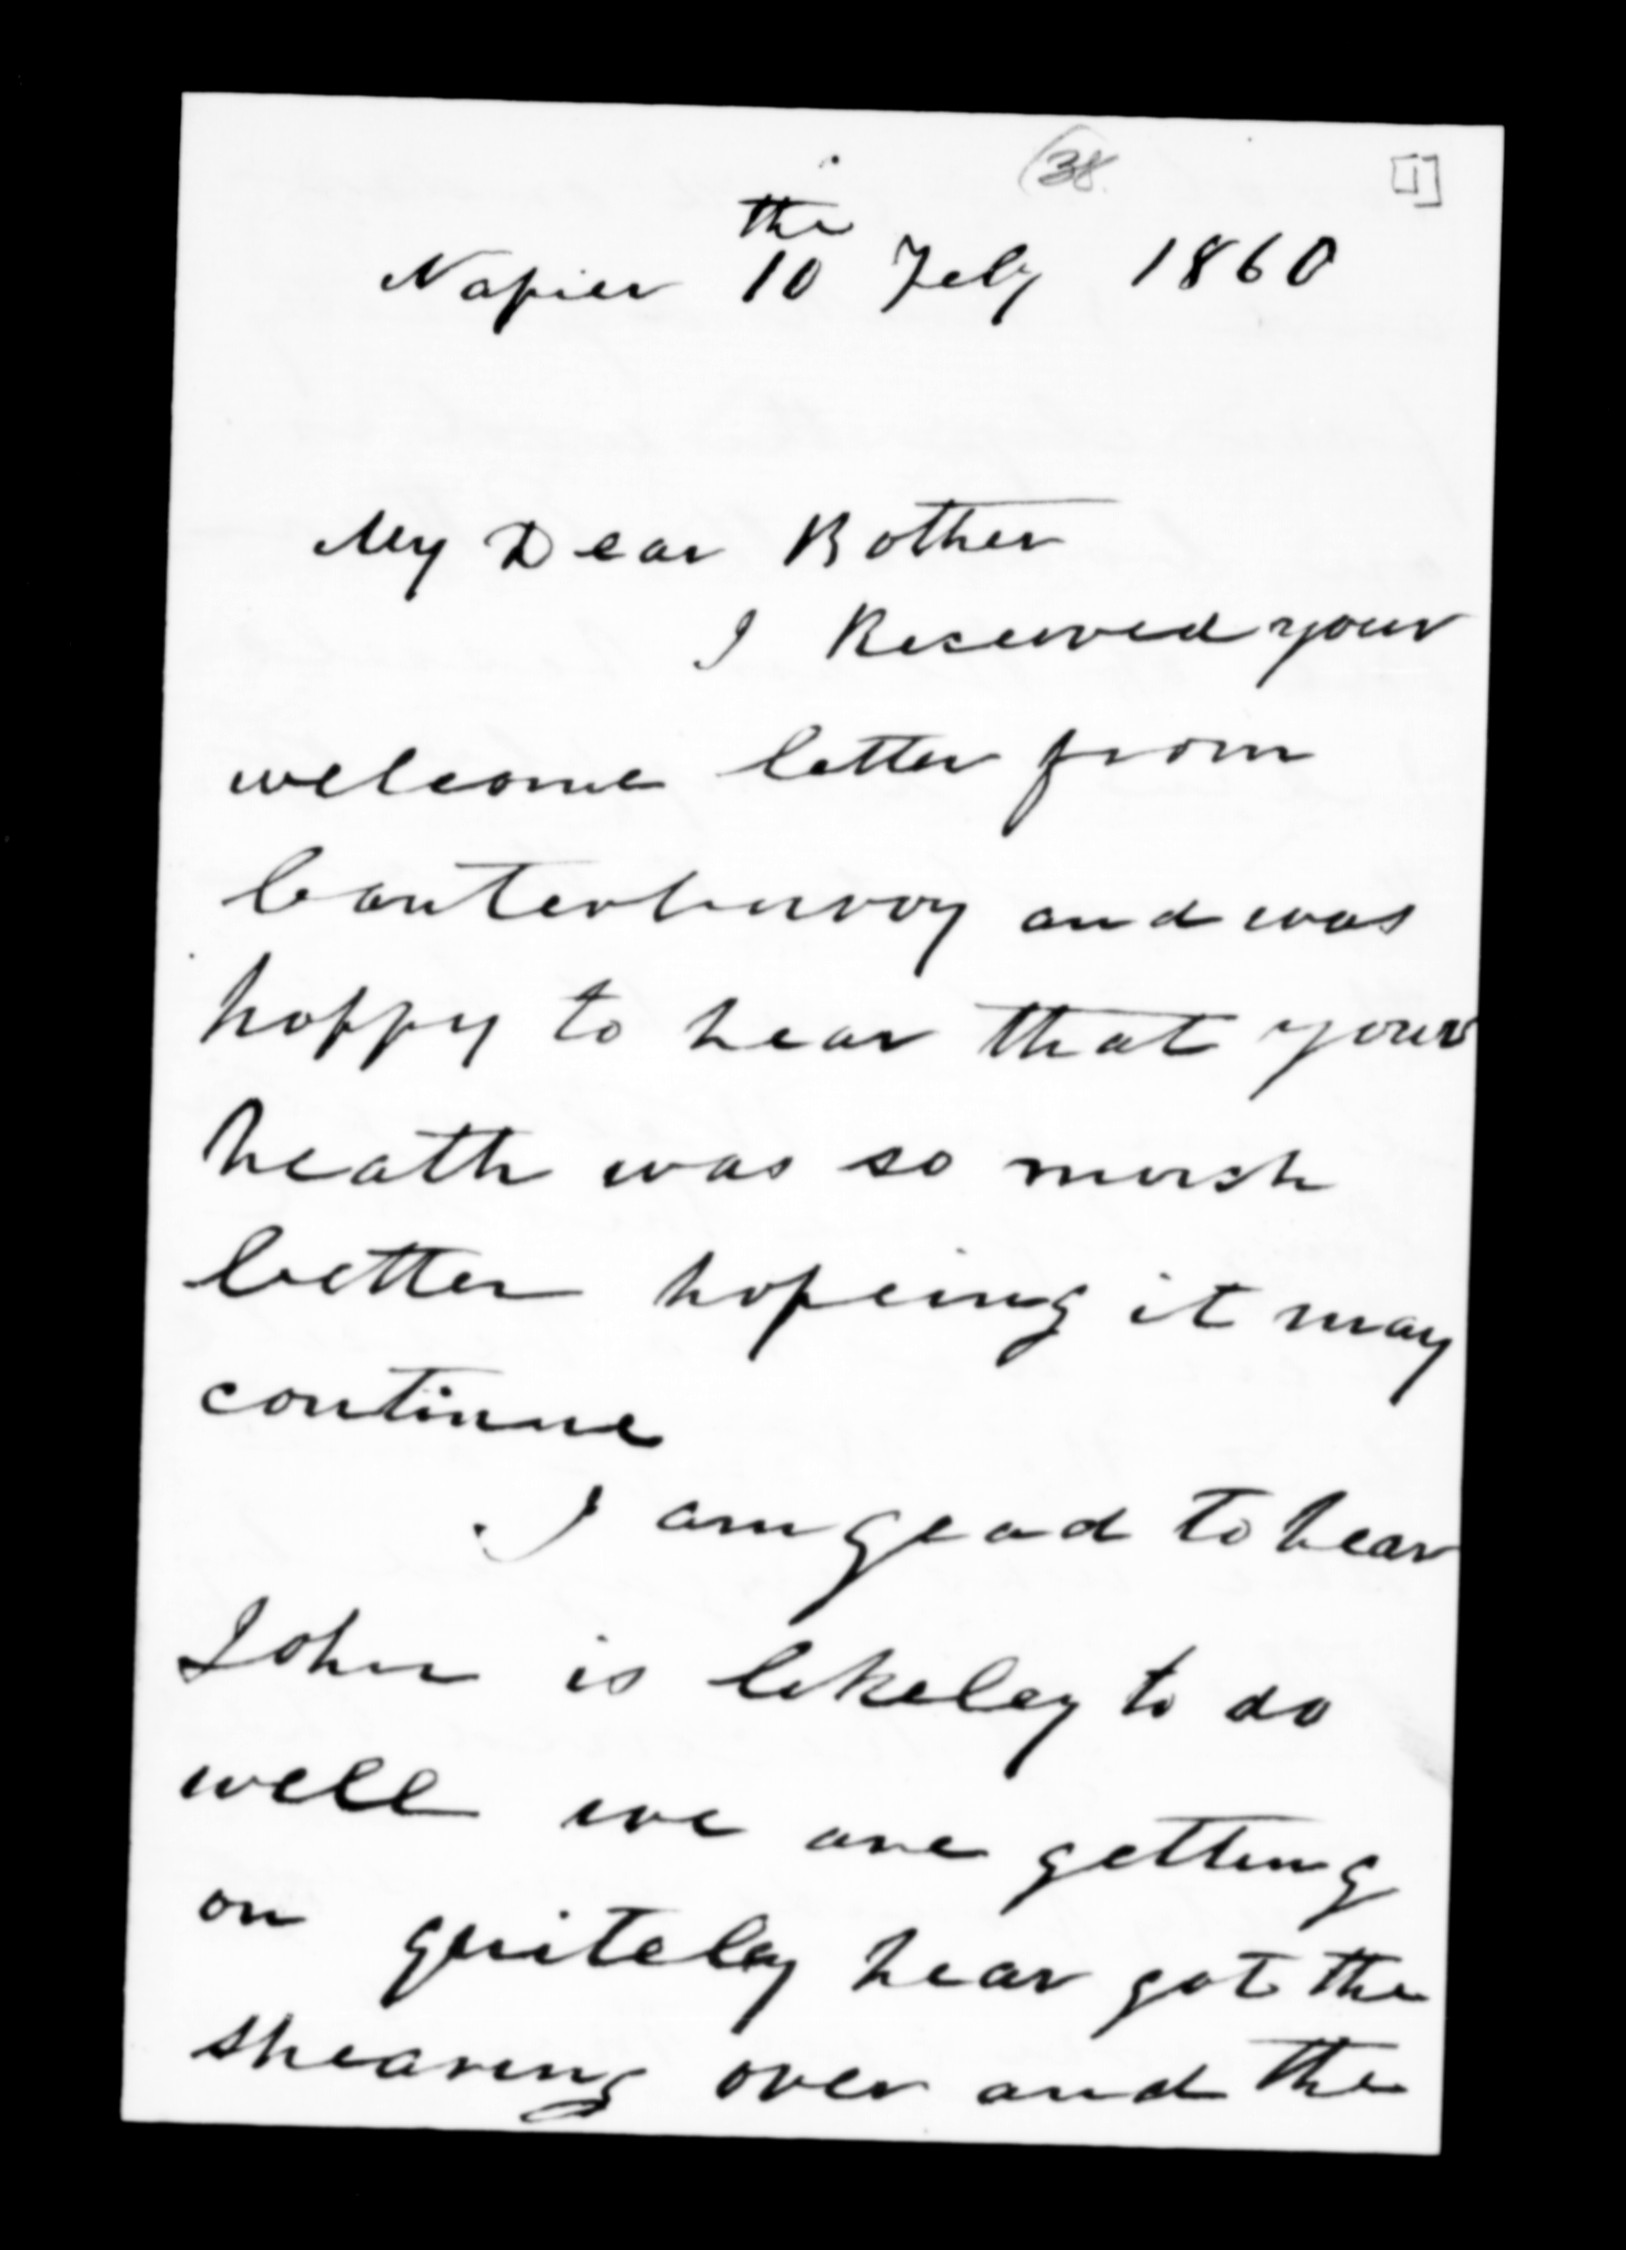 (38.
[1]
the
Napier 10 Feby 1860
My Dear Bother
I Reserved your
welcome letter from
Canterburry and was
happy to hear that your
heath was so mush
better hopeing it may
continue
I am gead to hear
John is likeley to do
well we are getting
on quiteley hear got the
shearing over and the